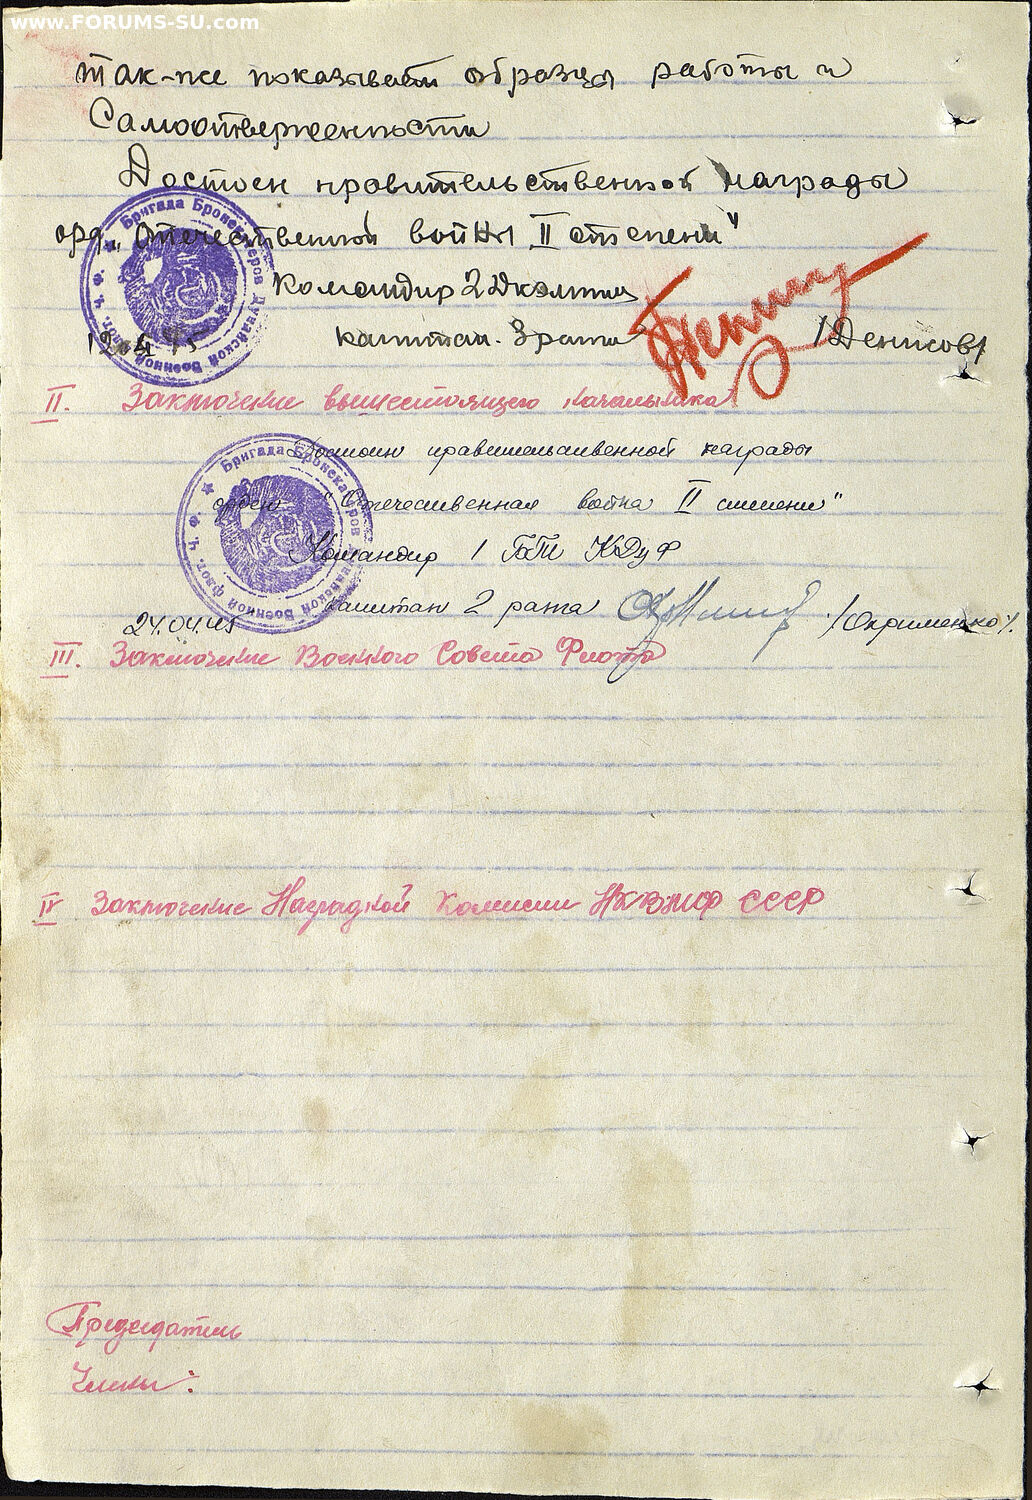 www.FORUMS-SU.com
так-же показывает образцы работы и
Самоотверженности
Достоен правительственной награды
орд. „Отечественной войны II степени"
Командир 2
12 4 45 капитан. 3 ранга /Денисов/
II. Заключение вышестоящего начальника
Достоин правительственной награды
орден "Отечественная война II степени"
Командир 1 КДуФ
капитан 2 ранга /Охрименко/.
24.04.45
III. Заключение Военного Совета Флота
IV Заключение Наградной Комиссии НКВМФ СССР
Председатель
Члены:
★ Бригада Бронекатеров Дунайской Военной флот. Ч. Ф.
★ Бригада Бронекатеров Дунайской Военной флот. Ч. Ф.